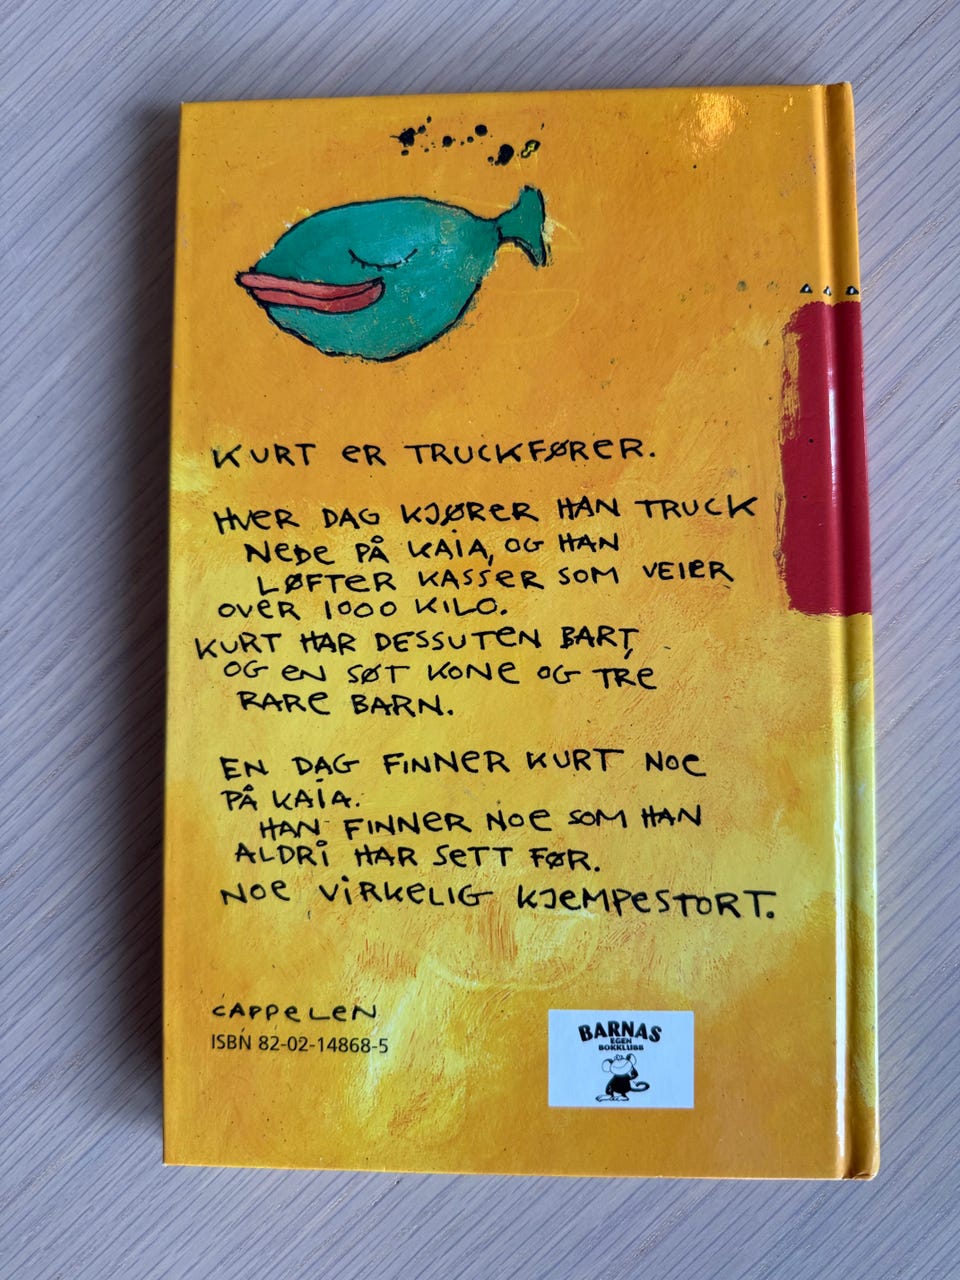 KURT ER TRUCKFØRER.
HVER DAG KJØRER HAN TRUCK
NEDE PÅ KAIA, OG HAN
LØFTER KASSER SOM VEIER
OVER 1000 KILO.
KURT HAR DESSUTEN BART,
OG EN SØT KONE OG TRE
RARE BARN.
EN DAG FINNER KURT NOE
PÅ KAIA.
HAN FINNER NOE SOM HAN
ALDRI HAR SETT FØR.
NOE VIRKELIG KJEMPESTORT.
CAPPELEN
ISBN 82-02-14868-5
BARNAS
EGEN
BOKKLUBB